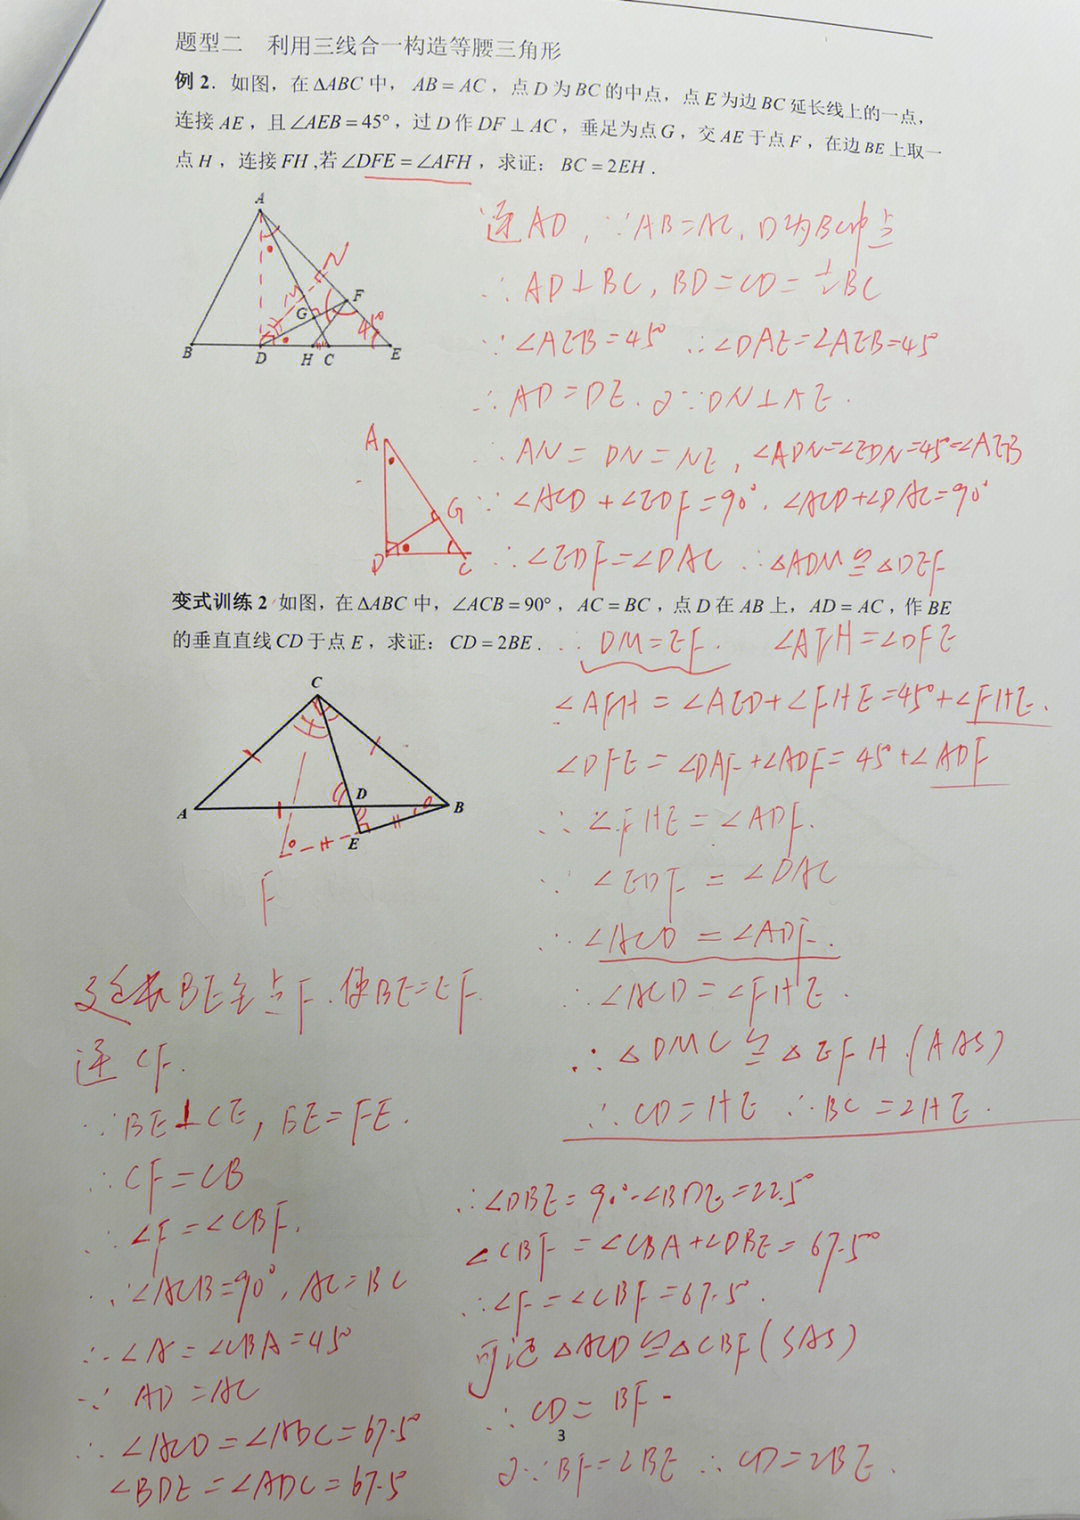 题型二 利用三线合一构造等腰三角形
例2. 如图，在ΔABC中，AB=AC，点D为BC的中点，点E为边BC延长线上的一点，
连接AE，且∠AEB=45°，过D作DF⊥AC，垂足为点G，交AE于点F，在边BE上取一
点H，连接FH,若∠DFE=∠AFH，求证：BC=2EH.
A
B
D
H
C
E
F
G
M
N
45°
连AD, ∵AB=AC, D为BC中点
∴AD⊥BC, BD=CD=½BC
∵∠AEB=45° ∴∠DAE=∠AEB=45°
∴AD=DE. 又∵DN⊥AE.
∴AN=DN=NE, ∠ADN=∠EDN=45°=∠AEB
∵∠ACD+∠EDF=90°. ∠ACD+∠DAC=90°
∴∠EDF=∠DAC ∴△ADM≌△DEF
A
G
D
C
变式训练2 如图，在ΔABC中，∠ACB=90°，AC=BC，点D在AB上，AD=AC，作BE
的垂直直线CD于点E，求证：CD=2BE.
∴DM=EF. ∠AFH=∠DFE
∠AFH=∠AED+∠FHE=45°+∠FHE.
∠DFE=∠DAF+∠ADF=45°+∠ADF
∴∠FHE=∠ADF.
∵∠EDF=∠DAC
∴∠ACD=∠ADF.
∴∠ACD=∠FHE.
∴△DMC≌△EFH.(AAS)
∴CD=HE ∴BC=2HE.
C
A
D
B
E
F
延长BE至点F.使BE=EF.
连CF.
∵BE⊥CE, BE=FE.
∴CF=CB
∴∠F=∠CBF.
∵∠ACB=90°, AC=BC
∴∠A=∠CBA=45°
∵AD=AC
∴∠ACD=∠ADC=67.5°
∠BDE=∠ADC=67.5
∴∠DBE=90°-∠BDE=22.5°
∠CBF=∠CBA+∠DBE=67.5°
∴∠F=∠CBF=67.5°.
可证△ACD≌△CBF(SAS)
∴CD=BF
3
又∵BF=2BE ∴CD=2BE.